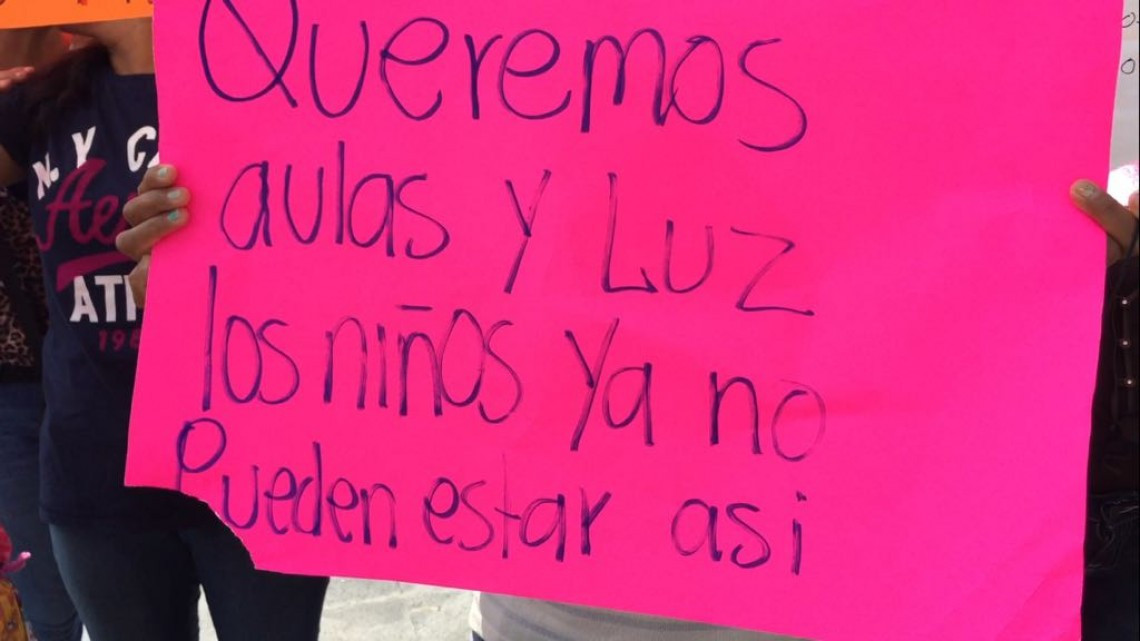 Queremos
aulas y Luz
los niños ya no
Pueden estar asi
N.Y.C.
ATH
198